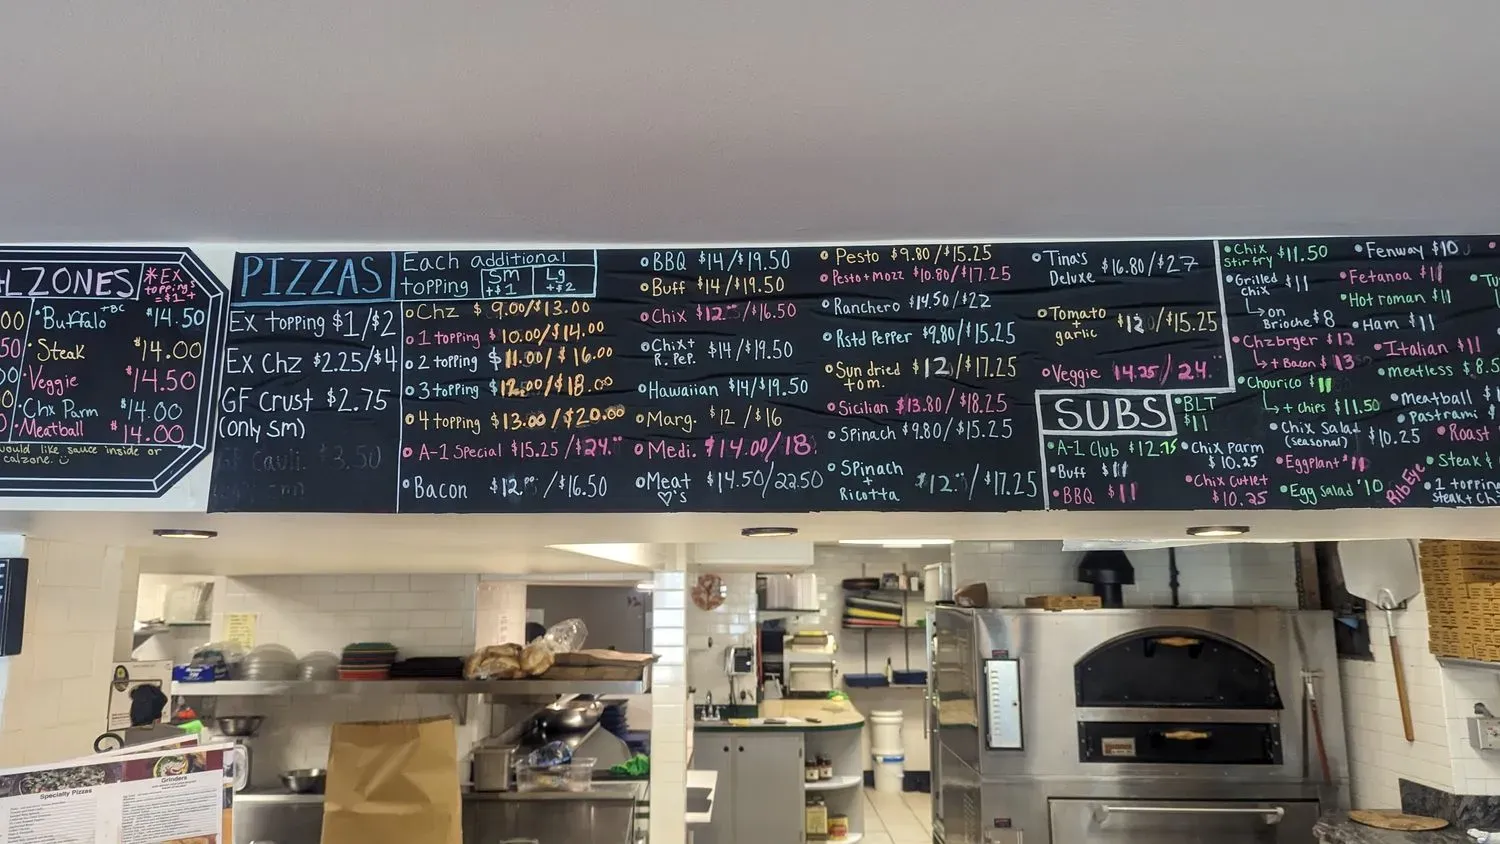 LZONES
*Ex
toppings
=$1+
Buffalo +BC $14.50
Steak $14.00
Veggie $14.50
Chx Parm $14.00
Meatball $14.00
would like sauce inside or
calzone.
PIZZAS
Ex topping $1/$2
Ex Chz $2.25/$4
GF Crust $2.75
(only Sm)
GF Cauli. $3.50
Each additional
topping
Sm
+$1
Lg
+$2
Chz $9.00/$13.00
1 topping $10.00/$14.00
2 topping $11.00/$16.00
3 topping $12.00/$18.00
4 topping $13.00/$20.00
A-1 Special $15.25/$24.
Bacon $12. /$16.50
BBQ $14/$19.50
Buff $14/$19.50
Chix $12. /$16.50
Chix+
R. Pep. $14/$19.50
Hawaiian $14/$19.50
Marg. $12/$16
Medi. $14.00/18.
Meat
♡'s $14.50/22.50
Pesto $9.80/$15.25
Pesto+Mozz $10.80/$17.25
Ranchero $14.50/$22
Rstd Pepper $9.80/$15.25
Sun dried
tom. $12/$17.25
Sicilian $13.80/$18.25
Spinach $9.80/$15.25
Spinach
+
Ricotta $12. /$17.25
Tina's
Deluxe $16.80/$27
Tomato
+
garlic $12 /$15.25
Veggie 14.25/24.
SUBS
A-1 Club $12.75
Buff $11
BBQ $11
BLT
$11
Chix Parm
$10.25
Chix Cutlet
$10.25
Chix
Stir fry $11.50
Grilled
Chix $11
on
Brioche $8
Chzbrger $12
+ Bacon $13
Chourico $11
+ chips $11.50
Chix Salad
(seasonal) $10.25
Eggplant $11
Egg Salad $10
Fenway $10
Fetanoa $11
Hot roman $11
Ham $11
Italian $11
meatless $8.5
meatball $
Pastrami $
Roast
Steak &
RibEye
1 topping
Steak+Ch
Specialty Pizzas
Grinders